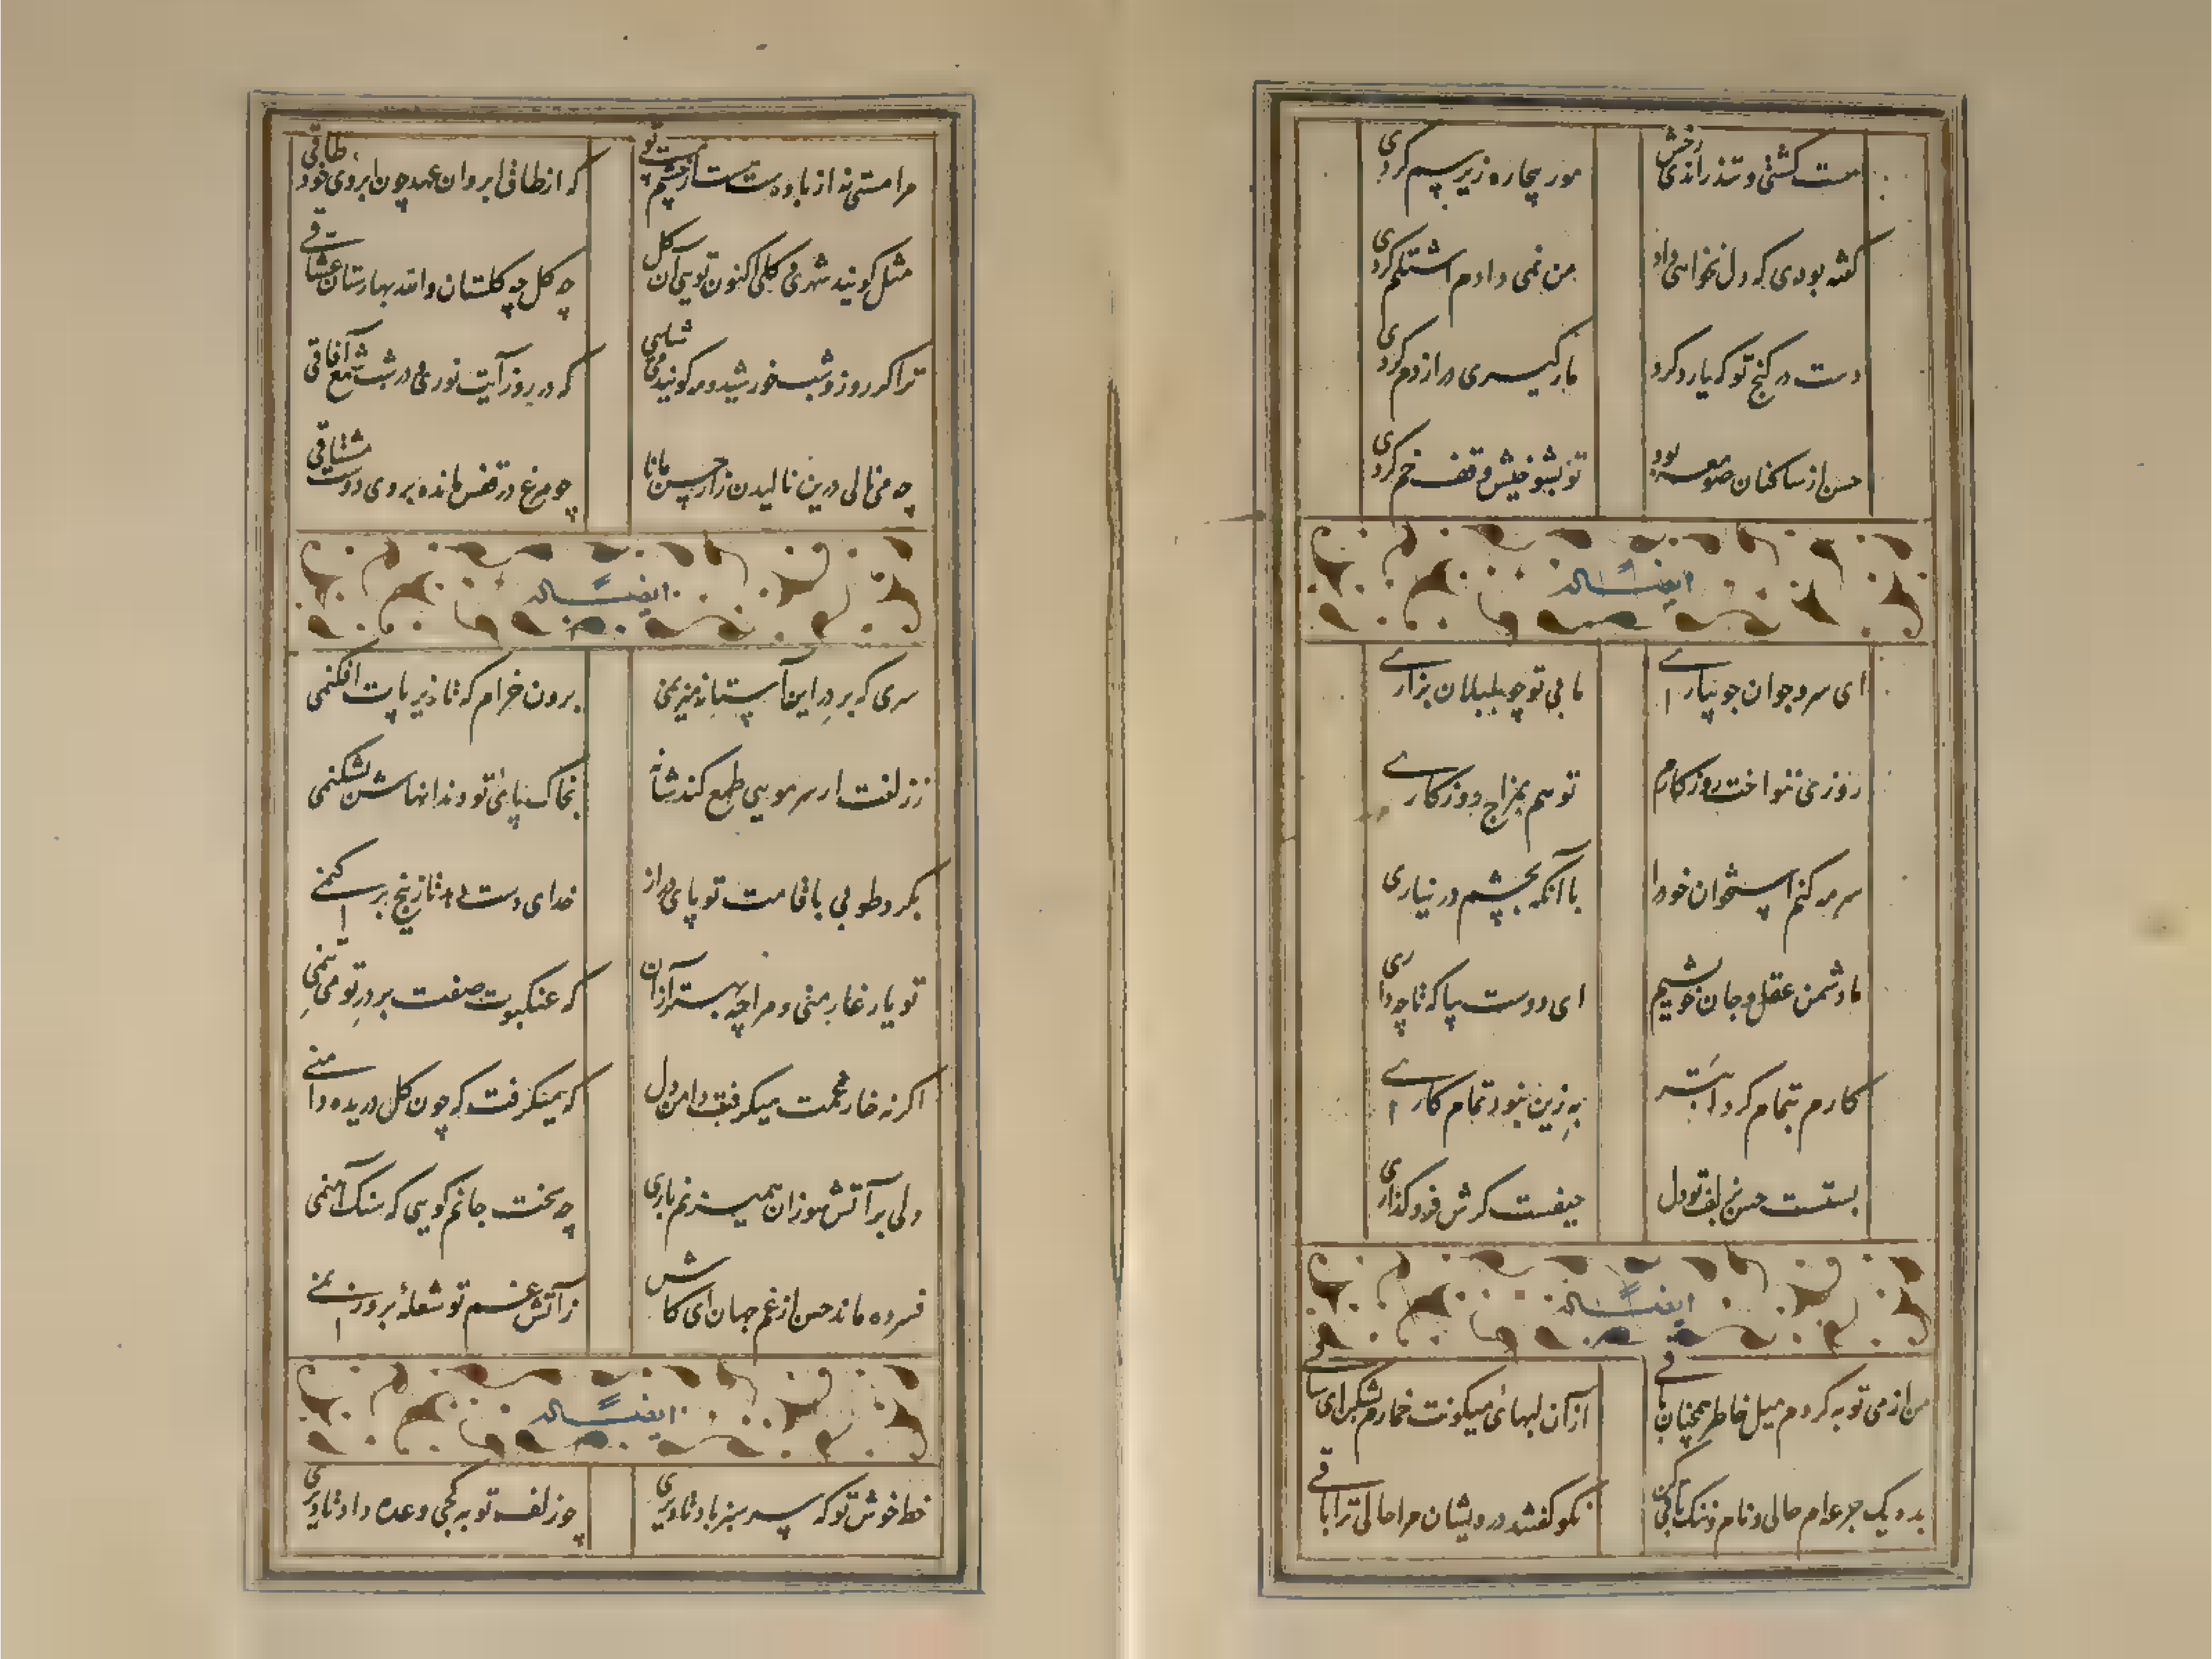 مست گشتی و تند راندی رخش
مور بیچاره زیر سم کردی
گفته بودی که دل نخواهی داد
من نمی دادم اشتلم کردی
دست در کنج تو که یارد کرد
مار گیسری دراز دم کردی
حسن از ساکنان صومعه بود
تو بیک
ایضاً له
ای سرو جوان جویباری
ما بی تو چو بلبلان بزاری
روزی ننواخت روزگارم
تو هم بمزاج روزگاری
سرمه کنم استخوان خود را
با آنکه بچشم در نیاری
ما دشمن عقل و جان خویشیم
ای دوست بیا که تا چه داری
کارم بتمام کرد ابتر
به زین نبود تمام کاری
بستست حسن بزلف تو دل
حیفست گرش فرو گذاری
ایضاً له
من از می توبه کردم میل خاطر همچنان باقی
از آن لبهای میگونت خمارم بشکن ای ساقی
بده یک جرعه ام حالی و نام و ننگ باقی کن
نکو گفتند درویشان مرا حالی ترا باقی
مرا مستی نه از باده ست مستم از چشم مست تو
که از طاقی ابروان عهد چون ابروی خود طاقی
مثل گویند شهری و گلی اکنون تویی آن گل
چه گل چه گلستان واقد بهارستان عشاقی
ترا گر روز و شب خورشید و مه گویند می شاسی
که در روز آیت نوری و در شب شمع آفاقی
چه می نالی درین نالیدن زار حسن مانا
چو مرغ در قفس مانده بروی دوست مشتاقی
ایضاً له
سری که بر در این آستانه میزنمی
برون خرام که تا زیر پات افکنمی
ز زلفت ار سر مویی طمع کند شانه
بخاک پای تو دندانهاش بشکنمی
بکرد طوبی با قامت تو پای دراز
خدای دست دهد تا ز بیخ برکنمی
تو یار غار منی و مرا چه بهتر از آن
که عنکبوت صفت بر در تو می تنمی
اگر نه خار غمت میگرفت دامن دل
که میگرفت که چون گل دریده دامنمی
ولی بر آتش سوزان همیزنم باری
چه سخت جانم گویی که سنگ آهنمی
فسرده ماند حسن از غم جهان ای کاش
ز آتش غم تو شعله بر روزنمی
ایضاً له
خط خوش تو که سر سبز باد تا دیری
چو زلف تو به کجی وعده داد تا دیری